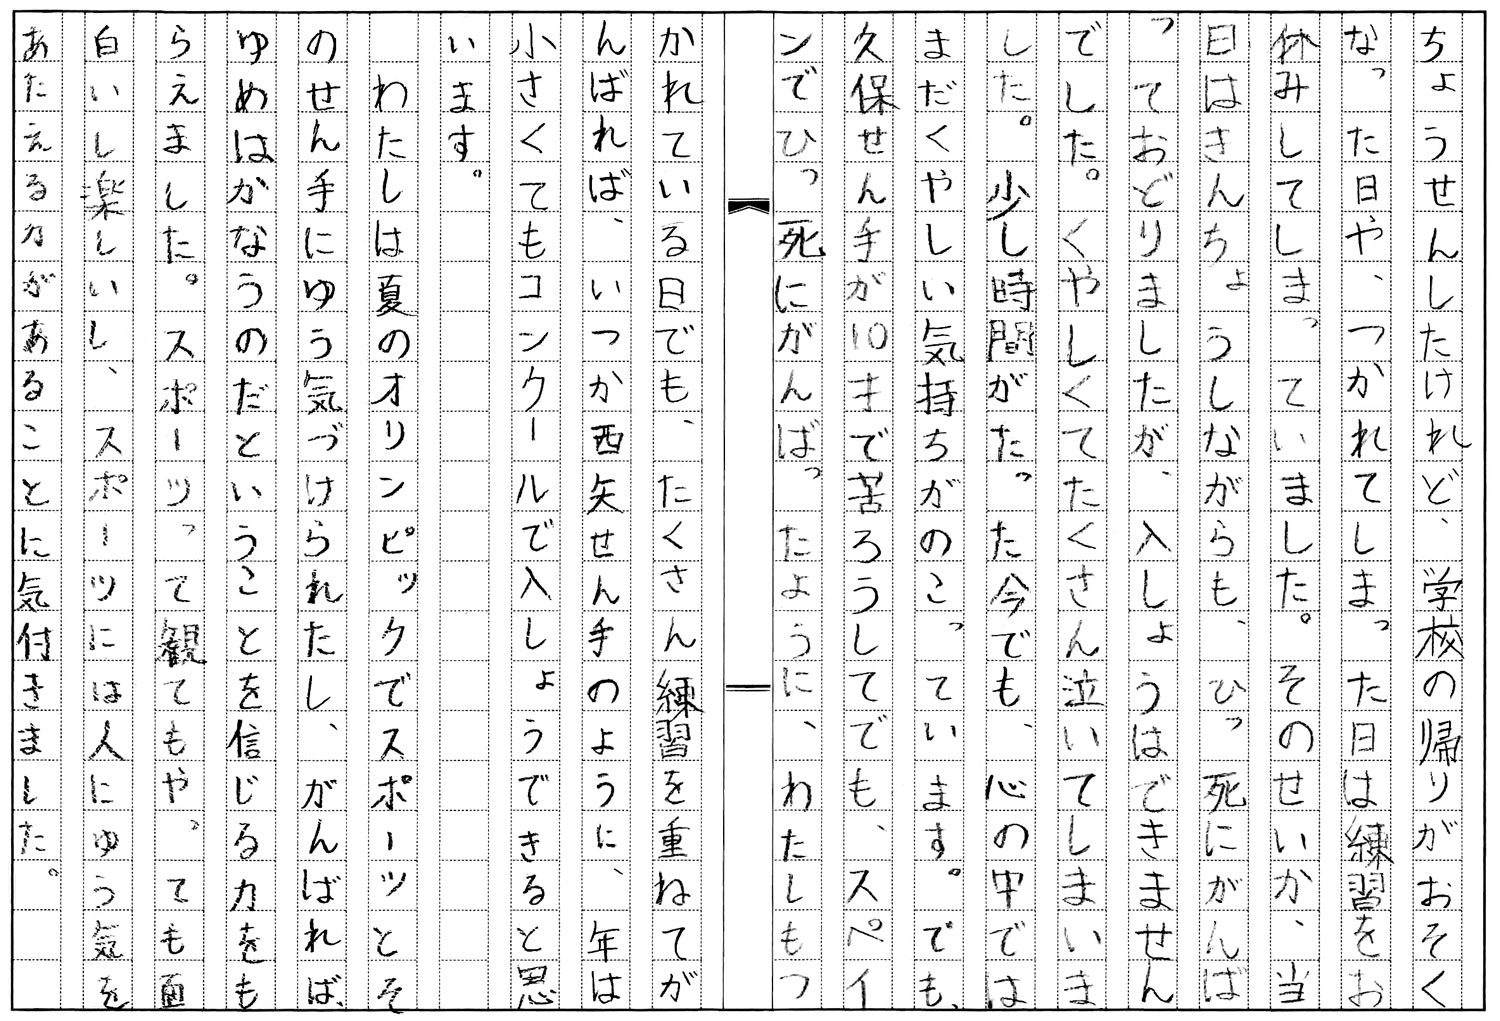 ちょうせんしたけれど、学校の帰りがおそく
なった日や、つかれてしまった日は練習をお
休みしてしまっていました。そのせいか、当
日はきんちょうしながらも、ひっ死にがんば
っておどりましたが、入しょうはできません
でした。くやしくてたくさん泣いてしまいま
した。少し時間がたった今でも、心の中では
まだくやしい気持ちがのこっています。でも、
久保せん手が10才で苦ろうしてでも、スペイ
ンでひっ死にがんばったように、わたしもつ
かれている日でも、たくさん練習を重ねてが
んばれば、いつか西矢せん手のように、年は
小さくてもコンクールで入しょうできると思
います。
わたしは夏のオリンピックでスポーツとそ
のせん手にゆう気づけられたし、がんばれば、
ゆめはかなうのだということを信じる力をも
らえました。スポーツって観てもやっても面
白いし楽しいし、スポーツには人にゆう気を
あたえる力があることに気付きました。